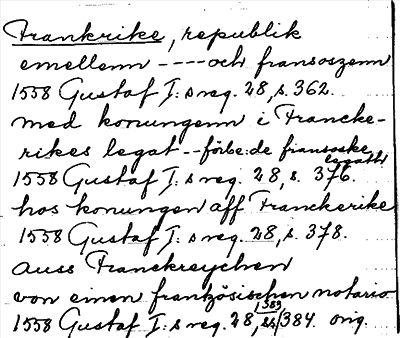 Frankrike, republik
emellenn ---- och fransoszenn
1558 Gustaf I:s reg. 28, s. 362.
med konungenn i Francke-
rikes legat -- förbe:de fransoske
legath
1558 Gustaf I:s reg. 28, s. 376.
hos konungen aff Franckerike
1558 Gustaf I:s reg. 28, s. 378.
auss Franckreychen
von einen frantzösischen notario
383
1558 Gustaf I:s reg. 28, 384. orig.